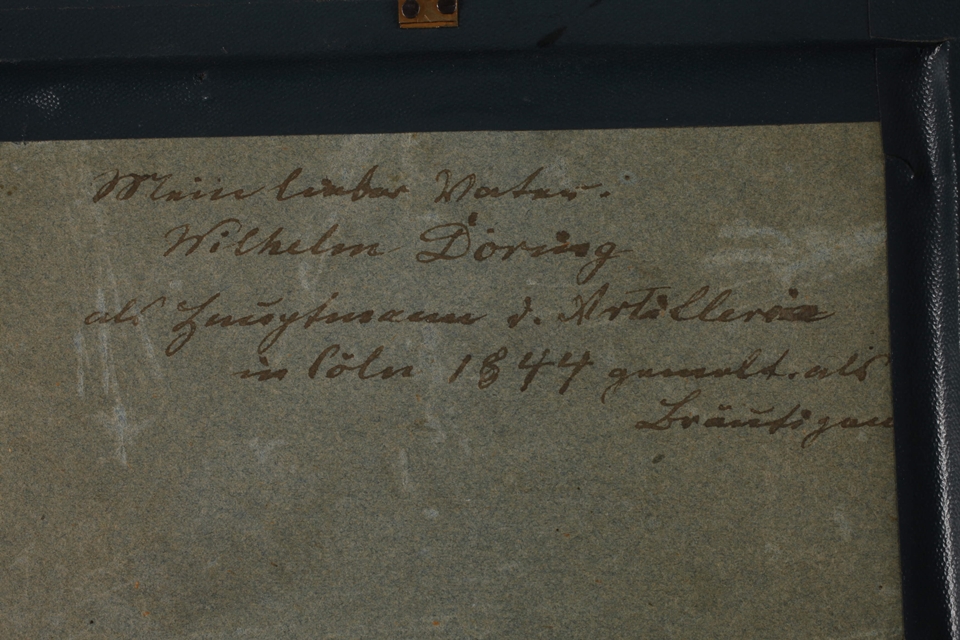 Mein lieber Vater.
Wilhelm Döring
als Hauptmann d. Artillerie
in Cöln 1844 gemalt. als
Bräutigam